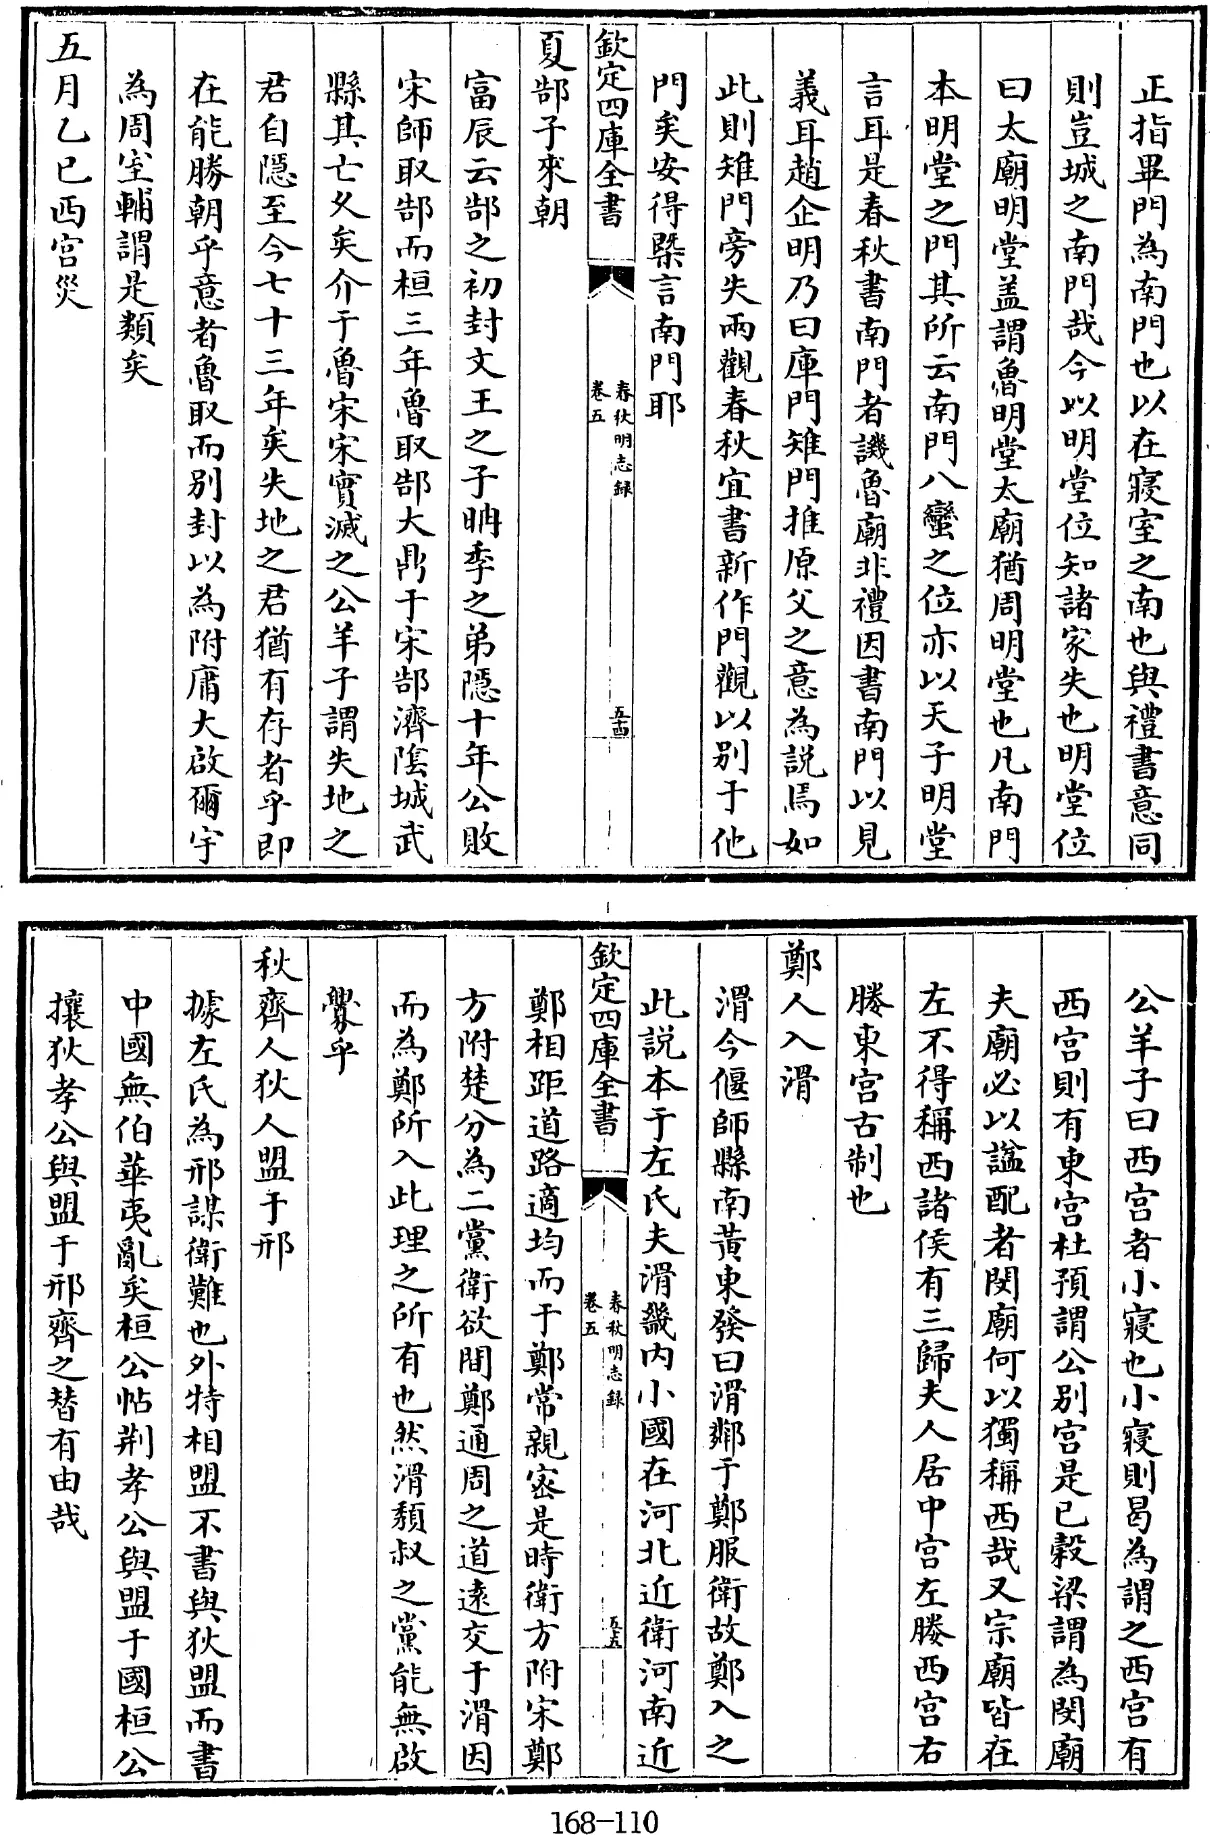 正指畢門為南門也以在寢室之南也與禮書意同
則豈城之南門哉今以明堂位知諸家失也明堂位
曰太廟明堂盖謂魯明堂太廟猶周明堂也凡南門
本明堂之門其所云南門八蠻之位亦以天子明堂
言耳是春秋書南門者譏魯廟非禮因書南門以見
義耳趙企明乃曰庫門雉門推原父之意為説焉如
此則雉門旁失兩觀春秋宜書新作門觀以别于他
門矣安得槩言南門耶
欽定四庫全書
春秋明志録
卷五
五十四
夏郜子來朝
富辰云郜之初封文王之子聃季之弟隱十年公敗
宋師取郜而桓三年魯取郜大鼎于宋郜濟隂城武
縣其亡久矣介于魯宋宋實滅之公羊子謂失地之
君自隱至今七十三年矣失地之君猶有存者乎即
在能勝朝乎意者魯取而别封以為附庸大啟爾宇
為周室輔謂是類矣
五月乙巳西宫災
公羊子曰西宫者小寢也小寢則曷為謂之西宫有
西宫則有東宫杜預謂公别宫是已穀梁謂為閔廟
夫廟必以諡配者閔廟何以獨稱西哉又宗廟皆在
左不得稱西諸侯有三歸夫人居中宫左媵西宫右
媵東宫古制也
鄭人入滑
滑今偃師縣南黄東發曰滑鄰于鄭服衛故鄭入之
此説本于左氏夫滑畿内小國在河北近衛河南近
欽定四庫全書
春秋明志録
卷五
五十五
鄭相距道路適均而于鄭常親宻是時衛方附宋鄭
方附楚分為二黨衛欲間鄭通周之道逺交于滑因
而為鄭所入此理之所有也然滑頽叔之黨能無啟
釁乎
秋齊人狄人盟于邢
據左氏為邢謀衛難也外特相盟不書與狄盟而書
中國無伯華夷亂矣桓公帖荆孝公與盟于國桓公
攘狄孝公與盟于邢齊之替有由哉
168-110